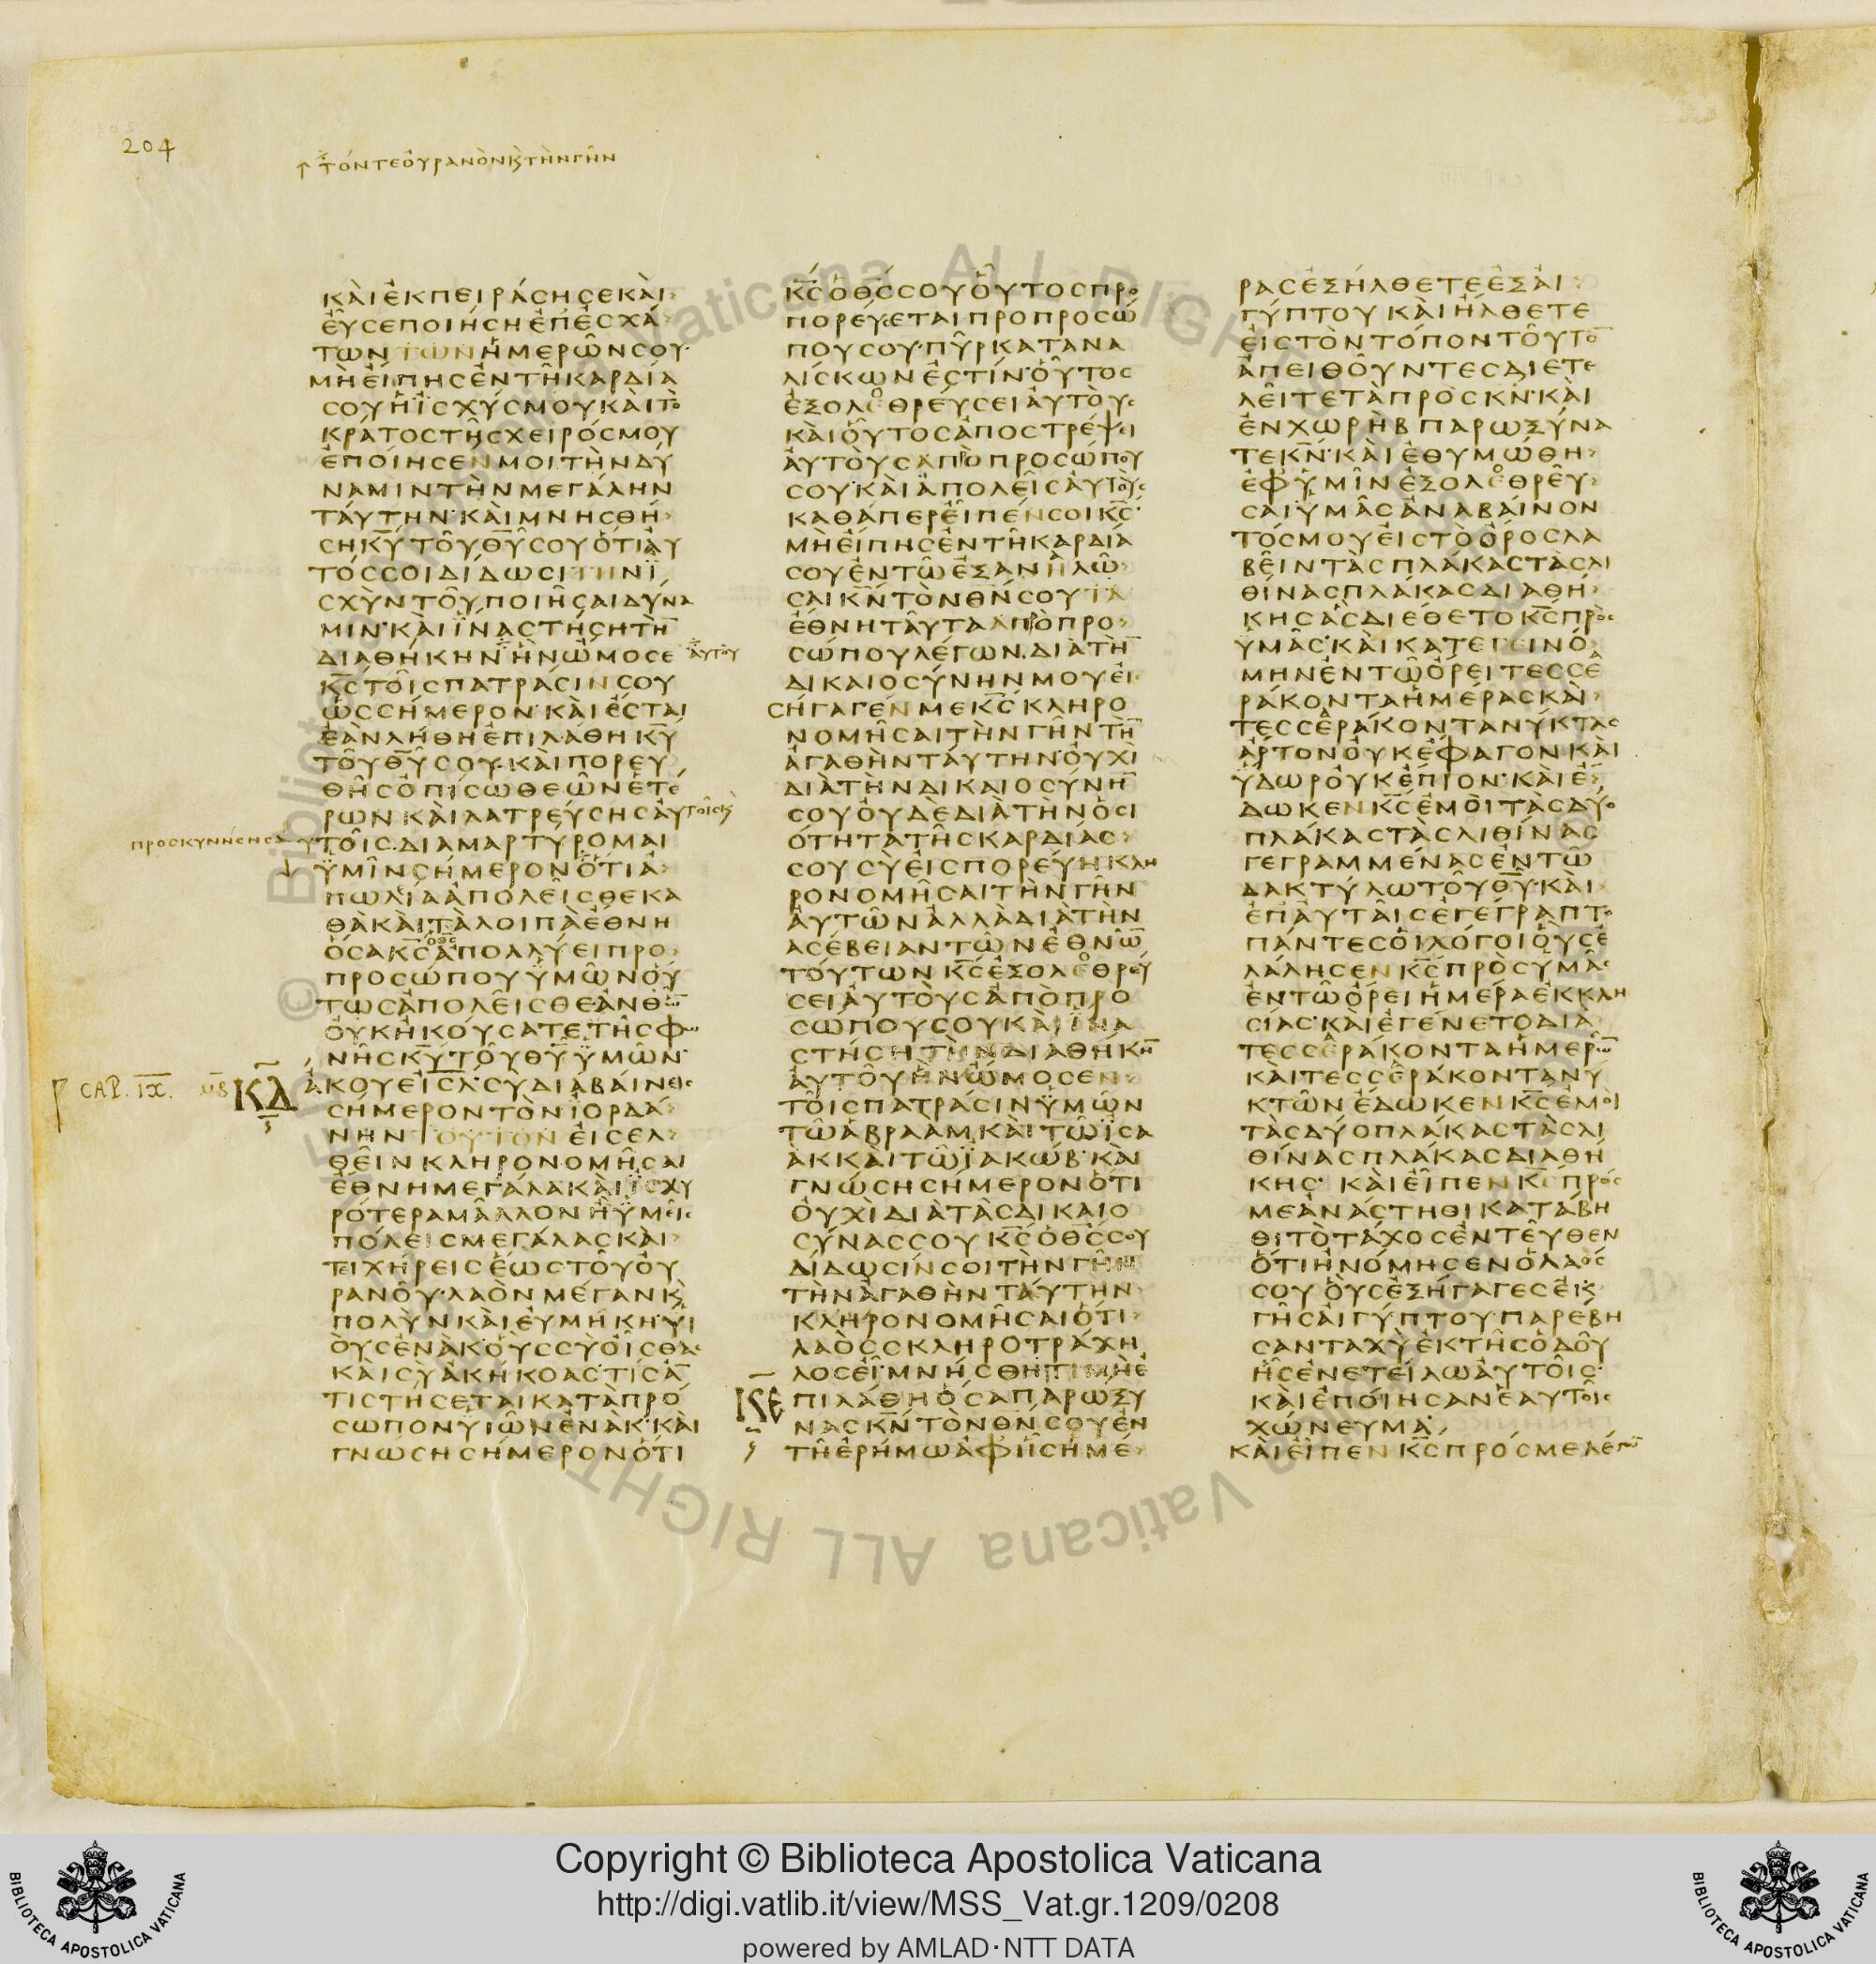 204
τόντεουρανὸνκ̀τὴνγῆν
ΚΑΙΕΚΠΕΙΡΑCΗCΕΚΑΙ
ΕΥCΕΠΟΙΗCΗΕΠΕCΧΑ
ΤΩΝΤΩΝΗΜΕΡΩΝCΟΥ·
ΜΗΕΙΠΗCΕΝΤΗΚΑΡΔΙΑ
CΟΥΗΙCΧΥCΜΟΥΚΑΙΤΟ
ΚΡΑΤΟCΤΗCΧΕΙΡΟCΜΟΥ
ΕΠΟΙΗCΕΝΜΟΙΤΗΝΔΥ
ΝΑΜΙΝΤΗΝΜΕΓΑΛΗΝ
ΤΑΥΤΗΝ·ΚΑΙΜΝΗCΘΗ
CΗΚΥ̅ΤΟΥΘΥ̅CΟΥΟΤΙΑΥ
ΤΟCCΟΙΔΙΔΩCΙΤΗΝΪ
CΧΥΝΤΟΥΠΟΙΗCΑΙΔΥΝΑ
ΜΙΝ·ΚΑΙΪΝΑCΤΗCΗΤΗ̅
ΔΙΑΘΗΚΗΝΗΝΩΜΟCΕ αυτου
ΚC̅ΤΟΙCΠΑΤΡΑCΙΝCΟΥ
ΩCCΗΜΕΡΟΝ·ΚΑΙΕCΤΑΙ
ΕΑΝΛΗΘΗΕΠΙΛΑΘΗΚΥ̅
ΤΟΥΘΥ̅CΟΥ·ΚΑΙΠΟΡΕΥ
ΘΗCΟΠΙCΩΘΕΩΝΕΤΕ
ΡΩΝΚΑΙΛΑΤΡΕΥCΗCΑΥΤΟΙCΚ̀
προσκυνήσησαυΤΟΙC·ΔΙΑΜΑΡΤΥΡΟΜΑΙ
ΫΜΙΝCΗΜΕΡΟΝΟΤΙΑ
ΠΩΛΙΑΑΠΟΛΕΙCΘΕΚΑ
ΘΑΚΑΙΤΑΛΟΙΠΑΕΘΝΗ
ΟCΑΚC̅ΑΠΟΛΛΥΕΙΠΡΟ
ΠΡΟCΩΠΟΥΫΜΩΝΟΥ
ΤΩCΑΠΟΛΕΙCΘΕΑΝΘΩ̅
ΟΥΚΗΚΟΥCΑΤΕΤΗCΦΩ
ΝΗCΚΥ̅ΤΟΥΘΥ̅ΫΜΩΝ·
CAP. IX. ΚΔ ΑΚΟΥΕΙCΛ·CΥΔΙΑΒΑΙΝΕΙC
CΗΜΕΡΟΝΤΟΝΙΟΡΔΑ
ΝΗΝΤΟΥΤΟΝΕΙCΕΛ
ΘΕΙΝΚΛΗΡΟΝΟΜΗCΑΙ
ΕΘΝΗΜΕΓΑΛΑΚΑΙΪCΧΥ
ΡΟΤΕΡΑΜΑΛΛΟΝΗΫΜΕΙC
ΠΟΛΕΙCΜΕΓΑΛΑCΚΑΙ
ΤΕΙΧΗΡΕΙCΕΩCΤΟΥΟΥ
ΡΑΝΟΥ·ΛΑΟΝΜΕΓΑΝΚ̀
ΠΟΛΥΝΚΑΙΕΥΜΗΚΗ·ΥΙ
ΟΥCΕΝΑΚ·ΟΥCCΥΟΙCΘΑ
ΚΑΙCΥΑΚΗΚΟΑC·ΤΙCΑ̅
ΤΙCΤΗCΕΤΑΙΚΑΤΑΠΡΟ
CΩΠΟΝΫΙΩΝΕΝΑΚ·ΚΑΙ
ΓΝΩCΗCΗΜΕΡΟΝΟΤΙ
ΚC̅ΟΘC̅CΟΥΟΥΤΟCΠΡΟ
ΠΟΡΕΥCΕΤΑΙΠΡΟΠΡΟCΩ
ΠΟΥCΟΥ·ΠΥΡΚΑΤΑΝΑ
ΛΙCΚΩΝΕCΤΙΝ·ΟΥΤΟC
ΕΞΟΛΕΘΡΕΥCΕΙΑΥΤΟΥC
ΚΑΙΟΥΤΟCΑΠΟCΤΡΕΨΕΙ
ΑΥΤΟΥCΑΠΟΠΡΟCΩΠΟΥ
CΟΥ·ΚΑΙΑΠΟΛΕΙCΑΥΤΟΥC
ΚΑΘΑΠΕΡΕΙΠΕΝCΟΙΚC̅·
ΜΗΕΙΠΗCΕΝΤΗΚΑΡΔΙΑ
CΟΥΕΝΤΩΕΞΑΝΗΛΩ
CΑΙΚΝ̅ΤΟΝΘΝ̅CΟΥΤΑ
ΕΘΝΗΤΑΥΤΑΑΠΟΠΡΟ
CΩΠΟΥΛΕΓΩΝ·ΔΙΑΤΗ̅
ΔΙΚΑΙΟCΥΝΗΝΜΟΥΕΙ
CΗΓΑΓΕΝΜΕΚC̅ΚΛΗΡΟ
ΝΟΜΗCΑΙΤΗΝΓΗΝΤΗ̅
ΑΓΑΘΗΝΤΑΥΤΗΝ·ΟΥΧΙ
ΔΙΑΤΗΝΔΙΚΑΙΟCΥΝΗ̅
CΟΥΟΥΔΕΔΙΑΤΗΝΟCΙ
ΟΤΗΤΑΤΗCΚΑΡΔΙΑC
CΟΥCΥΕΙCΠΟΡΕΥΗΚΛΗ
ΡΟΝΟΜΗCΑΙΤΗΝΓΗΝ
ΑΥΤΩΝΑΛΛΑΔΙΑΤΗΝ
ΑCΕΒΕΙΑΝΤΩΝΕΘΝΩ̅
ΤΟΥΤΩΝΚC̅ΕΞΟΛΕΘΡΕΥ
CΕΙΑΥΤΟΥCΑΠΟΠΡΟ
CΩΠΟΥCΟΥΚΑΙΪΝΑ
CΤΗCΗΤΗΝΔΙΑΘΗΚΗ̅
ΑΥΤΟΥΗΝΩΜΟCΕΝ
ΤΟΙCΠΑΤΡΑCΙΝΫΜΩΝ
ΤΩΑΒΡΑΑΜΚΑΙΤΩΪCΑ
ΑΚΚΑΙΤΩΪΑΚΩΒ·ΚΑΙ
ΓΝΩCΗCΗΜΕΡΟΝΟΤΙ
ΟΥΧΙΔΙΑΤΑCΔΙΚΑΙΟ
CΥΝΑCCΟΥΚC̅ΟΘC̅CΟΥ
ΔΙΔΩCΙΝCΟΙΤΗΝΓΗΝ
ΤΗΝΑΓΑΘΗΝΤΑΥΤΗΝ
ΚΛΗΡΟΝΟΜΗCΑΙΟΤΙ
ΛΑΟCCΚΛΗΡΟΤΡΑΧΗ
ΛΟCΕΙ·ΜΝΗCΘΗΤΙΜΗΕ
ΚΕ ΠΙΛΑΘΗΟCΑΠΑΡΩΞΥ
ΝΑCΚΝ̅ΤΟΝΘΝ̅CΟΥΕΝ
ΤΗΕΡΗΜΩΑΦΗCΗΜΕ
ΡΑCΕΞΗΛΘΕΤΕΕΞΑΙ
ΓΥΠΤΟΥΚΑΙΗΛΘΕΤΕ
ΕΙCΤΟΝΤΟΠΟΝΤΟΥΤΟ̅
ΑΠΕΙΘΟΥΝΤΕCΔΙΕΤΕ
ΛΕΙΤΕΤΑΠΡΟCΚΝ̅·ΚΑΙ
ΕΝΧΩΡΗΒΠΑΡΩΞΥΝΑ
ΤΕΚΝ̅·ΚΑΙΕΘΥΜΩΘΗ
ΕΦΥΜΙΝΕΞΟΛΕΘΡΕΥ
CΑΙΥΜΑCΑΝΑΒΑΙΝΟΝ
ΤΟCΜΟΥΕΙCΤΟΟΡΟCΛΑ
ΒΕΙΝΤΑCΠΛΑΚΑCΤΑCΛΙ
ΘΙΝΑCΠΛΑΚΑCΔΙΑΘΗ
ΚΗCΑCΔΙΕΘΕΤΟΚC̅ΠΡΟC
ΥΜΑC·ΚΑΙΚΑΤΕΓΕΙΝΟ
ΜΗΝΕΝΤΩΟΡΕΙΤΕCCΕ
ΡΑΚΟΝΤΑΗΜΕΡΑCΚΑΙ
ΤΕCCΕΡΑΚΟΝΤΑΝΥΚΤΑC
ΑΡΤΟΝΟΥΚΕΦΑΓΟΝΚΑΙ
ΥΔΩΡΟΥΚΕΠΙΟΝ·ΚΑΙΕ
ΔΩΚΕΝΚC̅ΕΜΟΙΤΑCΔΥΟ
ΠΛΑΚΑCΤΑCΛΙΘΙΝΑC
ΓΕΓΡΑΜΜΕΝΑCΕΝΤΩ
ΔΑΚΤΥΛΩΤΟΥΘΥ̅·ΚΑΙ
ΕΠΑΥΤΑΙCΕΓΕΓΡΑΠΤΟ
ΠΑΝΤΕCΟΙΛΟΓΟΙΟΥCΕ
ΛΑΛΗCΕΝΚC̅ΠΡΟCΥΜΑC
ΕΝΤΩΟΡΕΙΗΜΕΡΑΕΚΚΛΗ
CΙΑC·ΚΑΙΕΓΕΝΕΤΟΔΙΑ
ΤΕCCΕΡΑΚΟΝΤΑΗΜΕΡΩ̅
ΚΑΙΤΕCCΕΡΑΚΟΝΤΑΝΥ
ΚΤΩΝΕΔΩΚΕΝΚC̅ΕΜΟΙ
ΤΑCΔΥΟΠΛΑΚΑCΤΑCΛΙ
ΘΙΝΑCΠΛΑΚΑCΔΙΑΘΗ
ΚΗC· ΚΑΙΕΙΠΕΝΚC̅ΠΡΟC
ΜΕΑΝΑCΤΗΘΙΚΑΤΑΒΗ
ΘΙΤΟΤΑΧΟCΕΝΤΕΥΘΕΝ
ΟΤΙΗΝΟΜΗCΕΝΟΛΑΟC
CΟΥΟΥCΕΞΗΓΑΓΕCΕΚ
ΓΗCΑΙΓΥΠΤΟΥ·ΠΑΡΕΒΗ
CΑΝΤΑΧΥΕΚΤΗCΟΔΟΥ
ΗCΕΝΕΤΕΙΛΩΑΥΤΟΙC·
ΚΑΙΕΠΟΙΗCΑΝΕΑΥΤΟΙC
ΧΩΝΕΥΜΑ·
ΚΑΙΕΙΠΕΝΚC̅ΠΡΟCΜΕΛΕΓΩ̅
Copyright © Biblioteca Apostolica Vaticana
http://digi.vatlib.it/view/MSS_Vat.gr.1209/0208
powered by AMLAD·NTT DATA
BIBLIOTECA APOSTOLICA VATICANA
BIBLIOTECA APOSTOLICA VATICANA